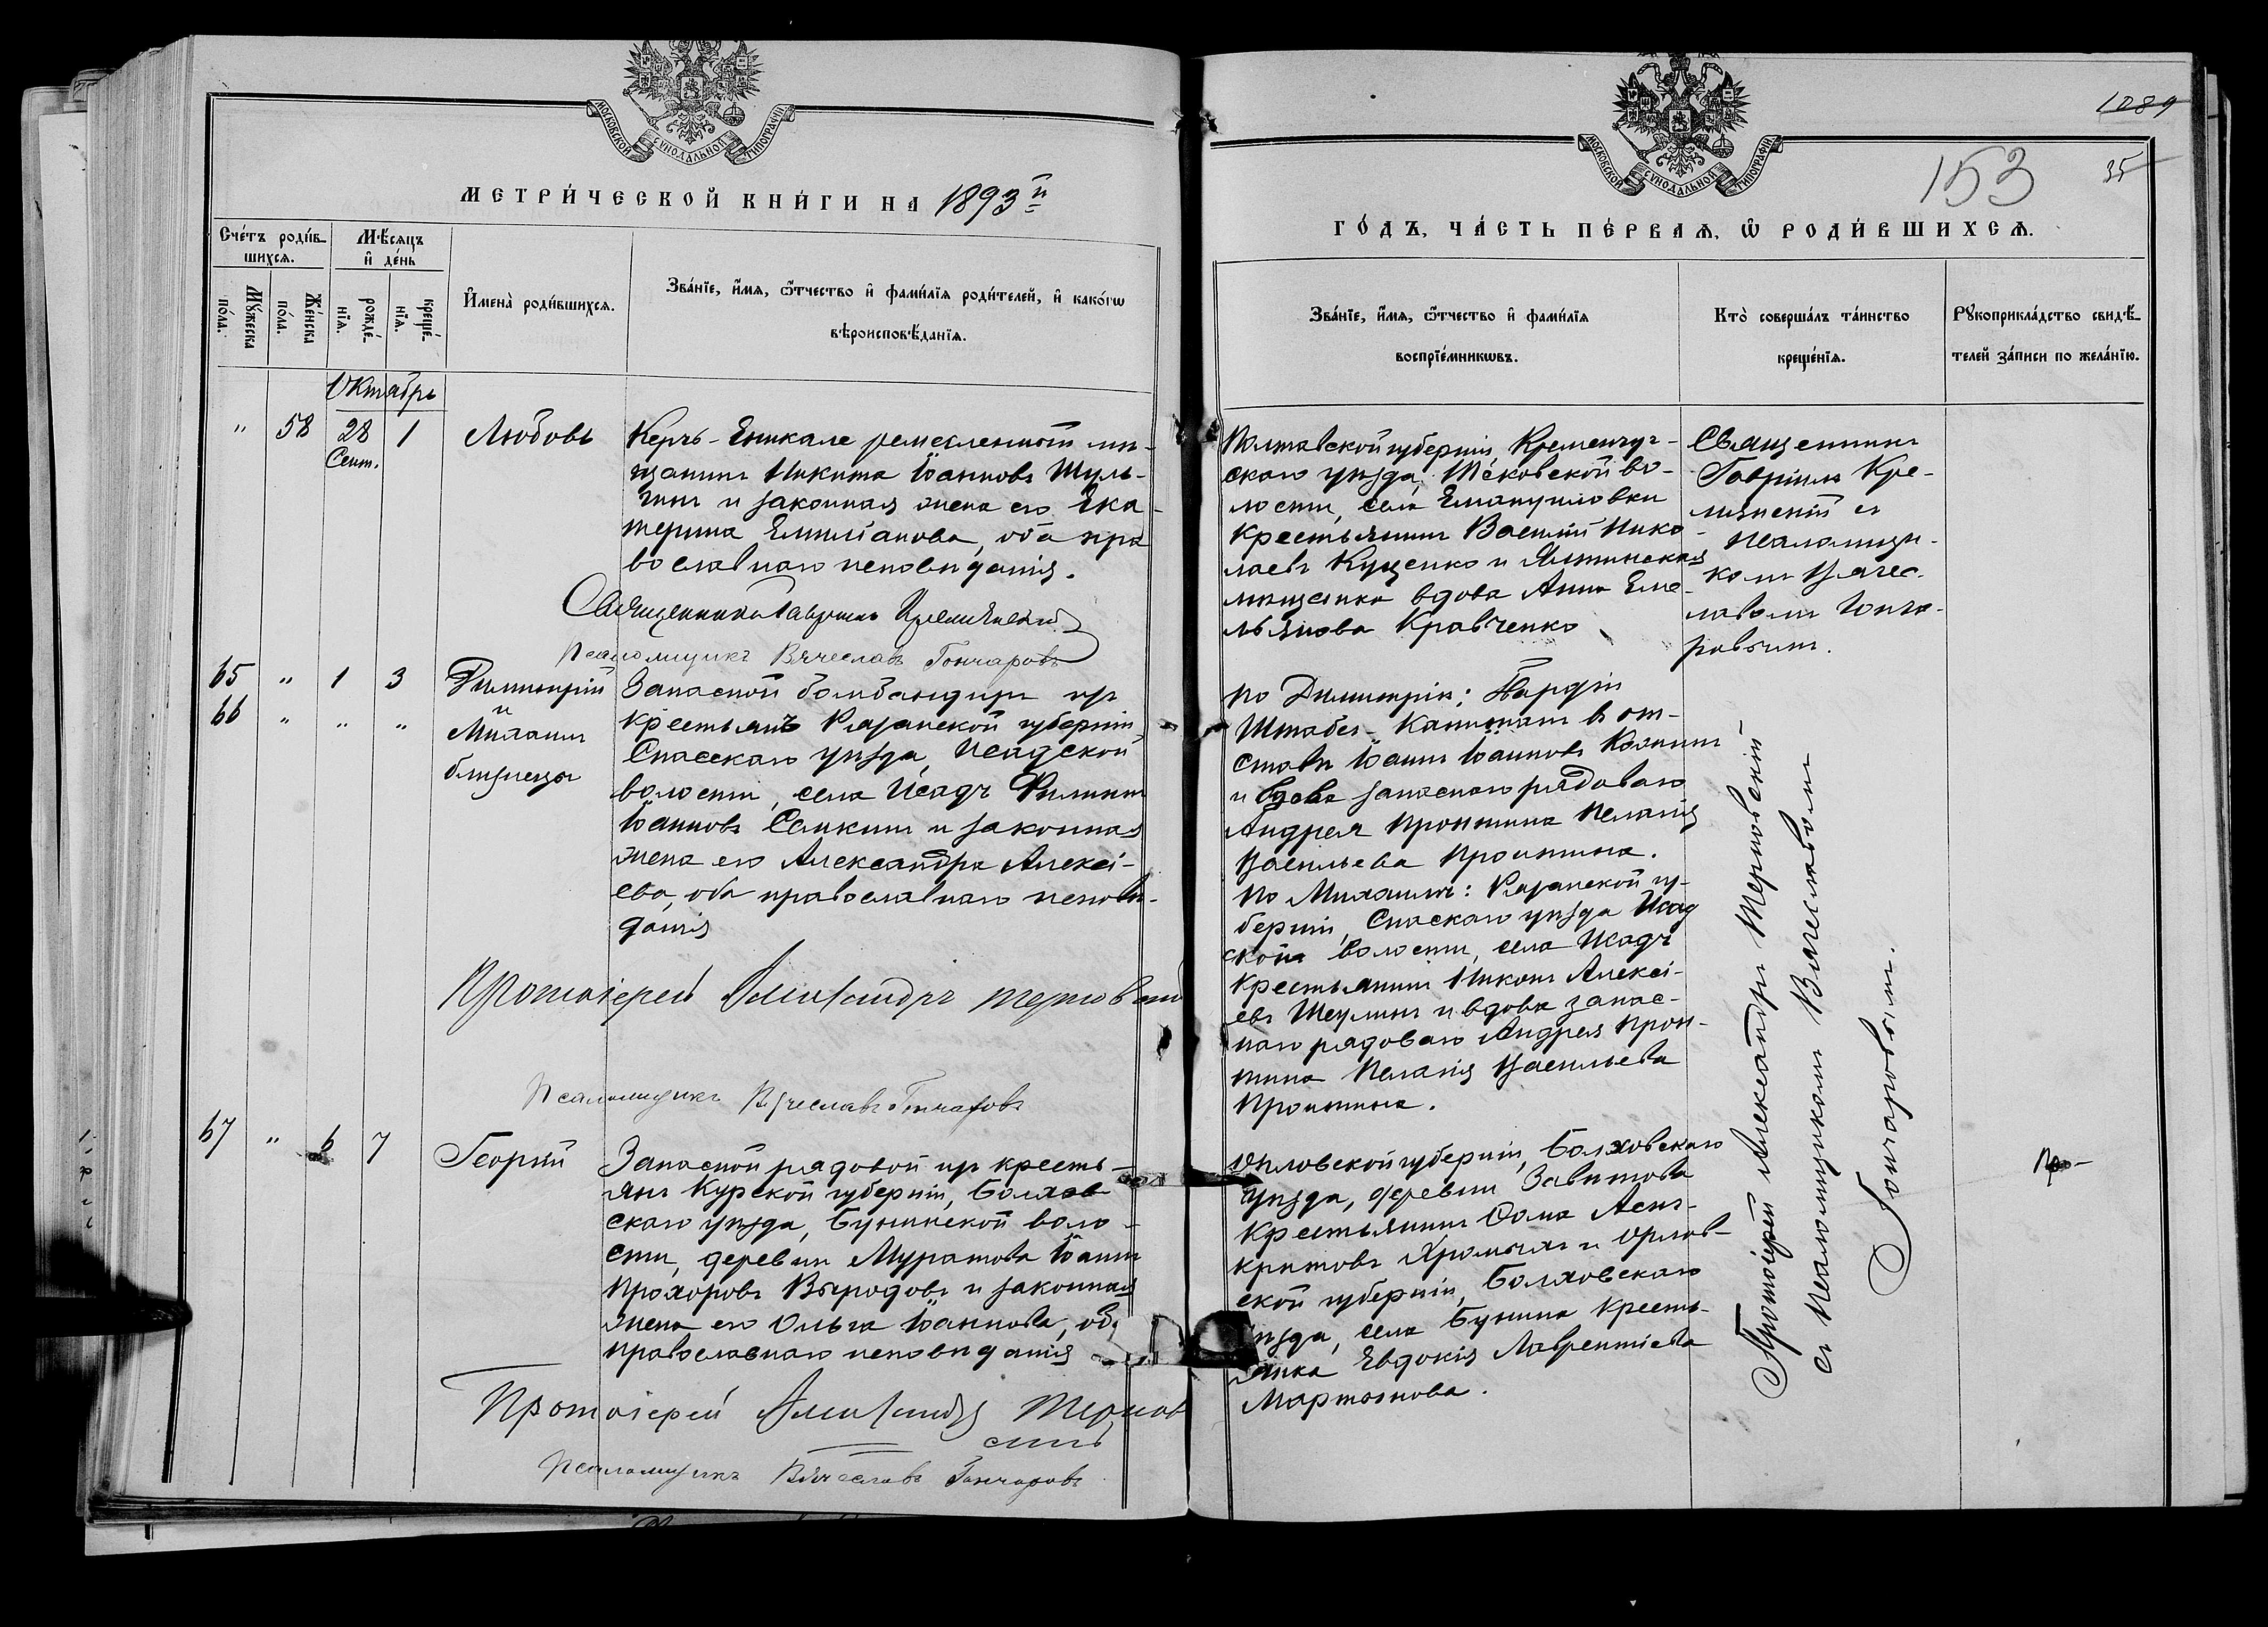 МОСКОВСКОЙ СѴНОДАЛЬНОЙ ТИПОГРАФІИ
МЕТРИ́ЧЕСКОЙ КНИ́ГИ НА 1893й
Сче́тъ роди́в-
шихсѧ.
Мꙋ́жеска
по́ла.
Же́нска
по́ла.
Мѣ́сѧцъ
и҆ де́нь
рожде́-
нїѧ.
креще́-
нїѧ.
И҆мена̀ роди́вшихсѧ.
Зва́нїе, и҆́мѧ, ѻ҆́тчество и҆ фами́лїѧ роди́телей, и҆ како́гѡ
вѣроисповѣ́данїѧ.
Октябрь
" 58 28 1 Любовь
Сент.
Керчь-Еникале ремесленный мѣ-
щанинъ Никита Іоанновъ Шуль-
гинъ и законная жена его Ека-
терина Емиліанова, оба пра
вославнаго исповѣданія.
Священникъ Гавріилъ
Псаломщикъ Вячеславъ Гончаровъ
65 " 1 3 Димитрій
66 " " " и
Михаилъ
близнецы
Запасной бомбандиръ изъ
крестьянъ Рязанской губерніи
Спасскаго уѣзда, Исадской
волости, села Исадъ Филиппъ
Іоанновъ Сенкинъ и законная
жена его Александра Алексі-
ева, оба православнаго исповѣ-
данія
Протоіерей Александръ Терновскій
Псаломщикъ Вячеславъ Гончаровъ
67 " 6 7 Георгій
Запасной рядовой изъ кресть-
янъ Курской губерніи, Болхов
скаго уѣзда, Бунинской воло-
сти, деревни Муратова Іоаннъ
Прохоровъ Выродовъ и законная
жена его Ольга Іоаннова, оба
православнаго исповѣданія
Протоіерей Александръ Тернов
скій
Псаломщикъ Вячеславъ Гончаровъ
1089
153
35
МОСКОВСКОЙ СѴНОДАЛЬНОЙ ТИПОГРАФІИ
ГО́ДЪ, ЧА́СТЬ ПЕ́РВАѦ, Ѡ҆ РОДИ́ВШИХСѦ.
Зва́нїе, и҆́мѧ, ѻ҆́тчество и҆ фами́лїѧ
воспрїе́мникѡвъ.
Кто̀ соверша́лъ та́инство
креще́нїѧ.
Рꙋкоприкла́дство свидѣ́-
телей за́писи по жела́нїю.
Полтавской губерніи, Кременчуг-
скаго уѣзда, во-
лости, села Емануиловки
крестьянинъ Василій Нико-
лаевъ Куценко и Ялтинская
мѣщанка вдова Анна Еме-
льянова Кравченко
Священникъ
Гавріилъ Кре-
съ
псаломщи-
комъ Вячес-
лавомъ Гонча-
ровымъ.
По Димитріи:
Штабсъ-Капитанъ въ от-
ставкѣ Іоаннъ Іоанновъ
и вдова запаснаго рядоваго
Андрея Пронтина Пелагія
Васильева Пронтина.
По Михаилѣ: Рязанской гу-
берніи, Спаскаго уѣзда Исад
ской волости, села Исадъ
крестьянинъ Никонъ Алексі-
евъ и вдова запас-
наго рядоваго Андрея Прон-
тина Пелагія Васильева
Пронтина.
Орловской губерніи, Болховскаго
уѣзда, деревни
крестьянинъ Фома
критовъ и Орлов-
ской губерніи, Болховскаго
уѣзда, села Бунина кресть-
янка Евдокія Лаврентіева
Мартынова.
Протоіерей Александръ Терновскій
съ псаломщикомъ Вячеславомъ
Гончаровымъ.